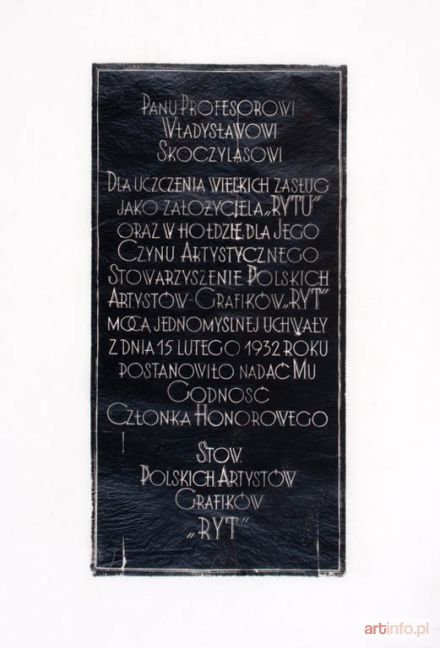 Panu Profesorowi
Władysławowi
Skoczylasowi
Dla uczczenia wielkich zasług
jako założyciela „RYTU"
oraz w hołdzie dla Jego
Czynu Artystycznego
Stowarzyszenie Polskich
Artystów-Grafików „RYT"
mocą jednomyślnej uchwały
z dnia 15 lutego 1932 roku
postanowiło nadać Mu
Godność
Członka Honorowego
Stow.
Polskich Artystów
Grafików
„RYT"
artinfo.pl